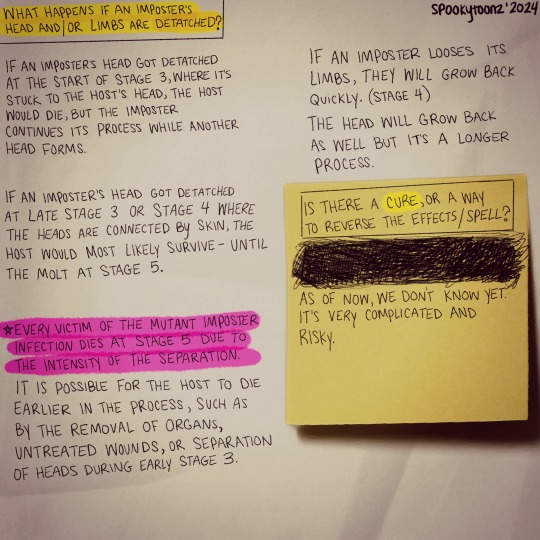 WHAT HAPPENS IF AN IMPOSTER'S
HEAD AND/OR LIMBS ARE DETATCHED?
IF AN IMPOSTER'S HEAD GOT DETATCHED
AT THE START OF STAGE 3, WHERE IT'S
STUCK TO THE HOST'S HEAD, THE HOST
WOULD DIE, BUT THE IMPOSTER
CONTINUES ITS PROCESS WHILE ANOTHER
HEAD FORMS.
IF AN IMPOSTER'S HEAD GOT DETATCHED
AT LATE STAGE 3 OR STAGE 4 WHERE
THE HEADS ARE CONNECTED BY SKIN, THE
HOST WOULD MOST LIKELY SURVIVE - UNTIL
THE MOLT AT STAGE 5.
★EVERY VICTIM OF THE MUTANT IMPOSTER
INFECTION DIES AT STAGE 5 DUE TO
THE INTENSITY OF THE SEPARATION.
IT IS POSSIBLE FOR THE HOST TO DIE
EARLIER IN THE PROCESS, SUCH AS
BY THE REMOVAL OF ORGANS,
UNTREATED WOUNDS, OR SEPARATION
OF HEADS DURING EARLY STAGE 3.
SPOOKYTOONZ'2024
IF AN IMPOSTER LOOSES ITS
LIMBS, THEY WILL GROW BACK
QUICKLY. (STAGE 4)
THE HEAD WILL GROW BACK
AS WELL BUT IT'S A LONGER
PROCESS.
IS THERE A CURE, OR A WAY
TO REVERSE THE EFFECTS/SPELL?
AS OF NOW, WE DON'T KNOW YET.
IT'S VERY COMPLICATED AND
RISKY.